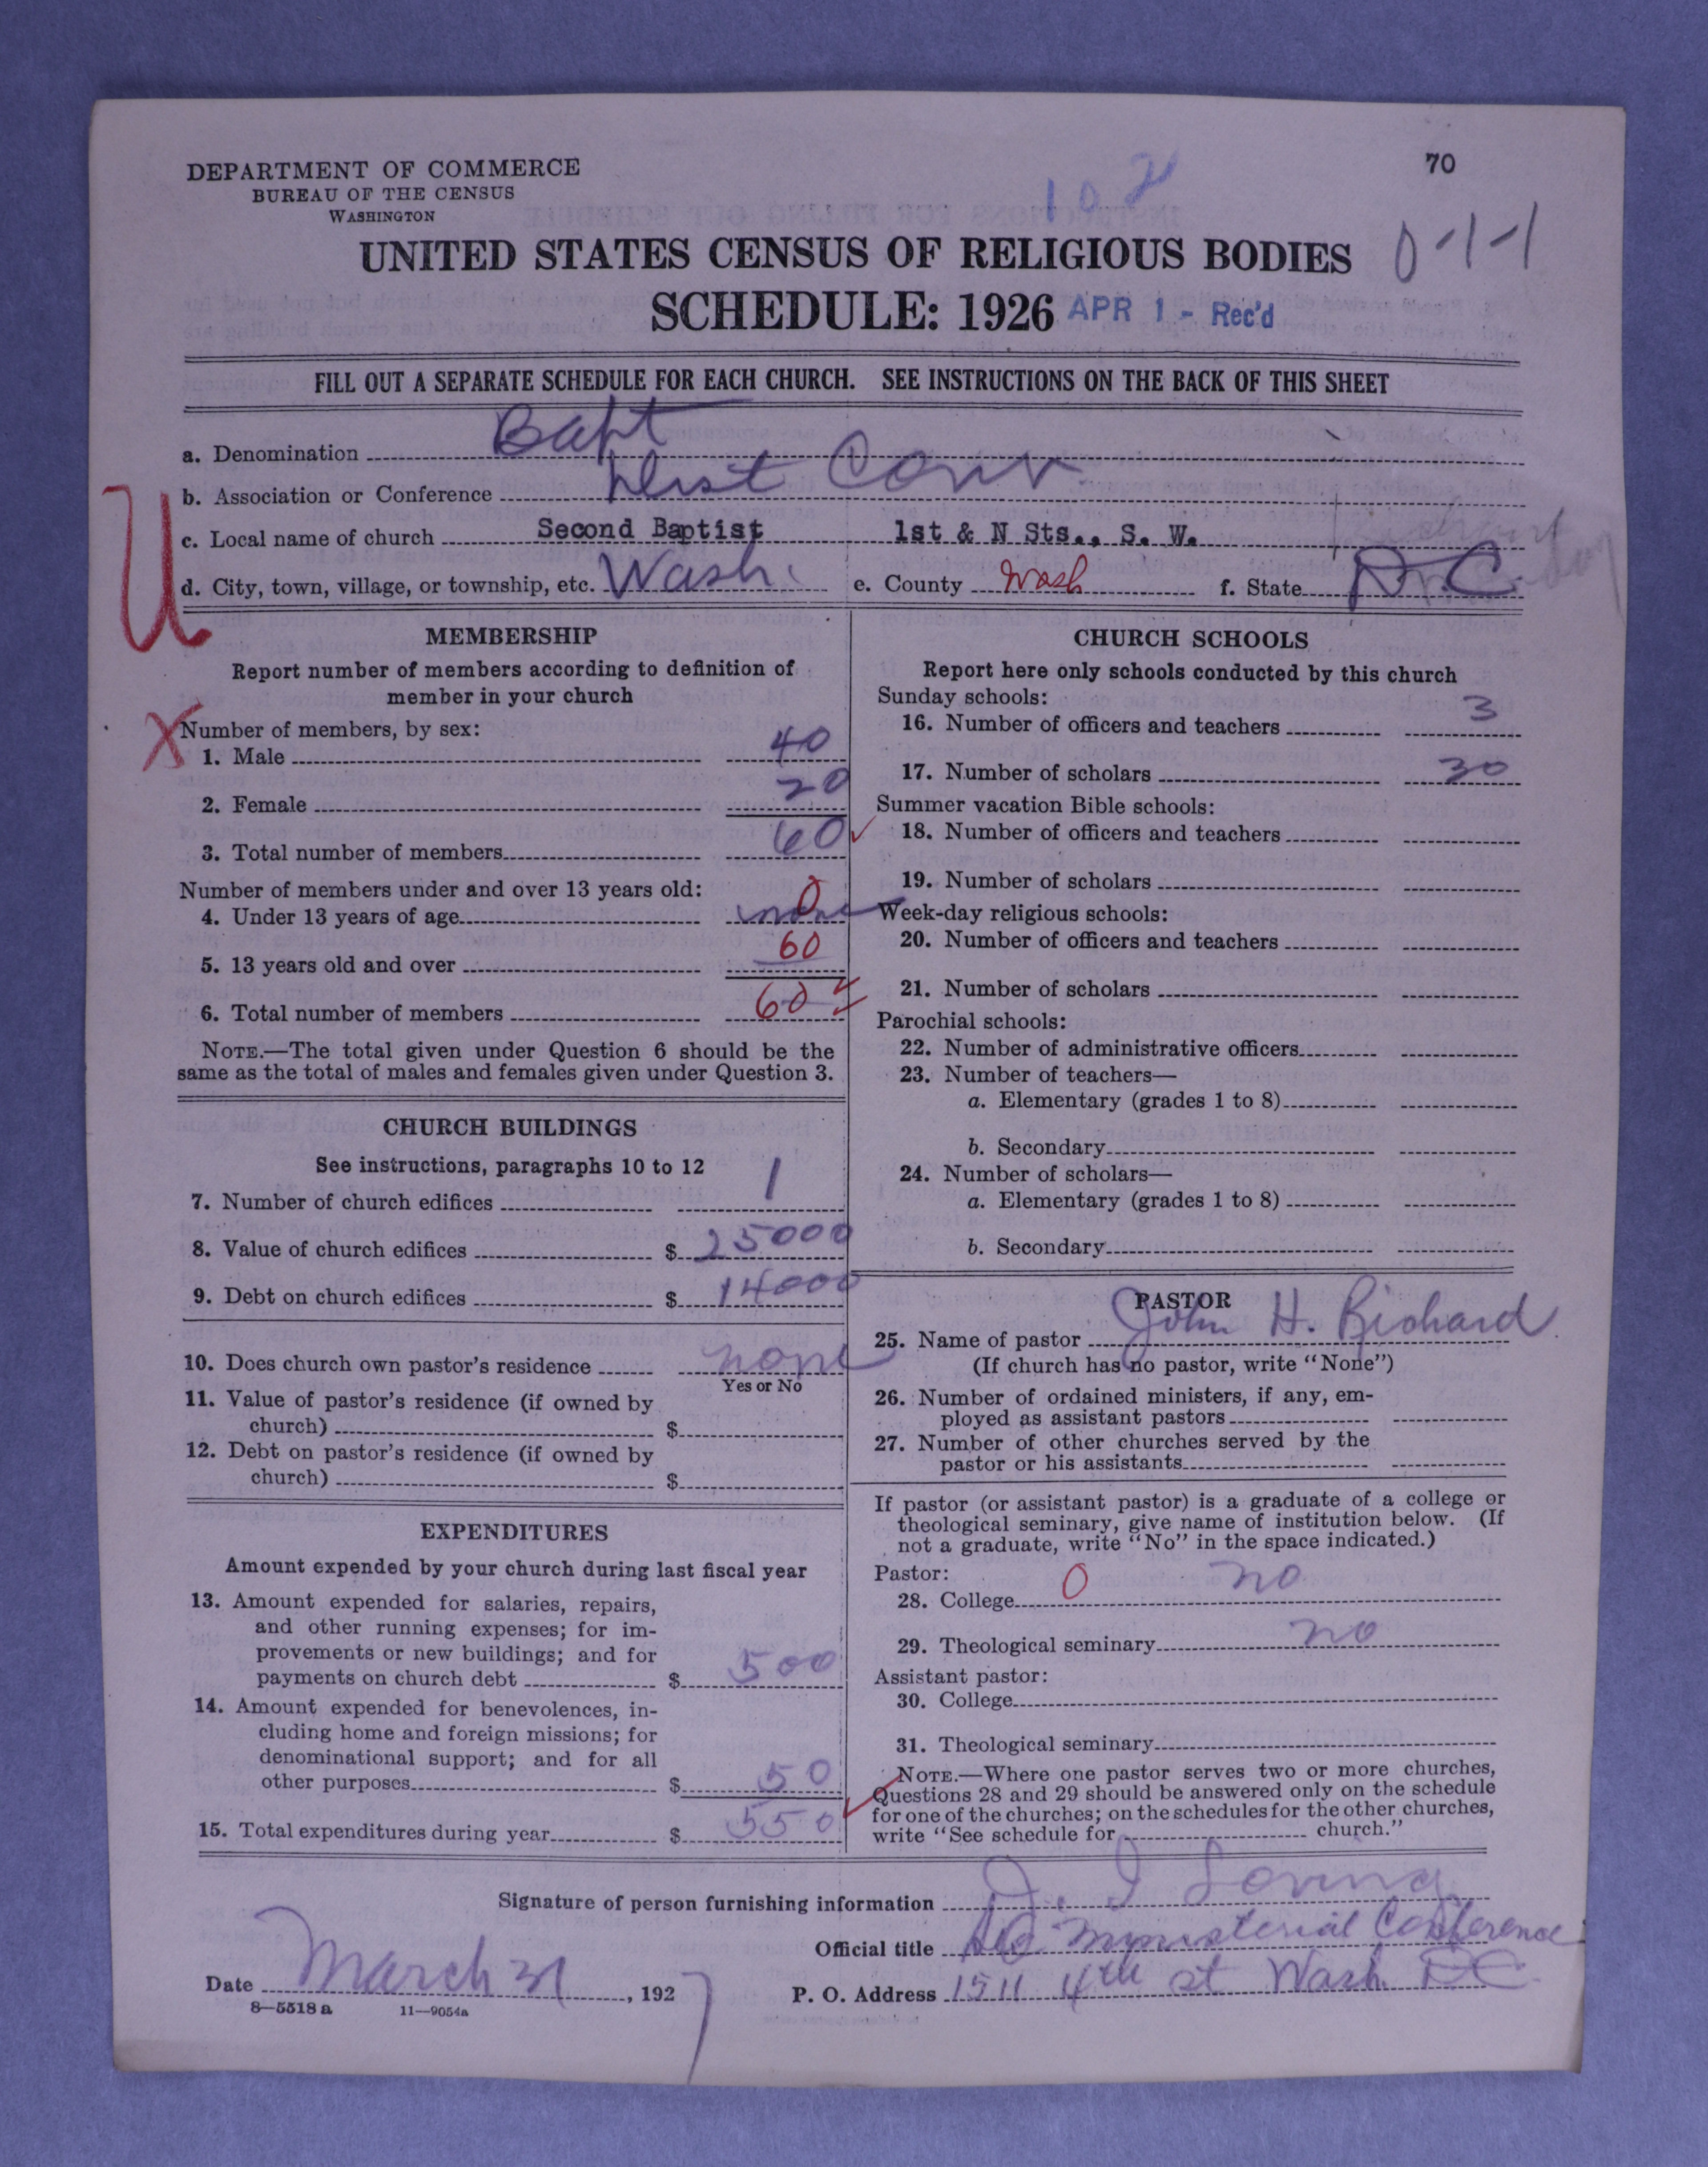 DEPARTMENT OF COMMERCE
BUREAU OF THE CENSUS
WASHINGTON
70
102
0-1-1
UNITED STATES CENSUS OF RELIGIOUS BODIES
SCHEDULE: 1926 APR 1 - Rec'd
FILL OUT A SEPARATE SCHEDULE FOR EACH CHURCH. SEE INSTRUCTIONS ON THE BACK OF THIS SHEET
a. Denomination Bapt
b. Association or Conference Dist Conv
c. Local name of church Second Baptist 1st & N Sts., S. W.
d. City, town, village, or township, etc. Wash. e. County Wash f. State D.C.
U
MEMBERSHIP
Report number of members according to definition of
member in your church
X
Number of members, by sex:
1. Male 40
2. Female 20
3. Total number of members 60
Number of members under and over 13 years old:
4. Under 13 years of age none 0
5. 13 years old and over 60
6. Total number of members 60
NOTE.—The total given under Question 6 should be the
same as the total of males and females given under Question 3.
CHURCH BUILDINGS
See instructions, paragraphs 10 to 12
7. Number of church edifices 1
8. Value of church edifices $ 25000
9. Debt on church edifices $ 14000
10. Does church own pastor's residence none
Yes or No
11. Value of pastor's residence (if owned by
church) $
12. Debt on pastor's residence (if owned by
church) $
EXPENDITURES
Amount expended by your church during last fiscal year
13. Amount expended for salaries, repairs,
and other running expenses; for im-
provements or new buildings; and for
payments on church debt $ 500
14. Amount expended for benevolences, in-
cluding home and foreign missions; for
denominational support; and for all
other purposes $ 50
15. Total expenditures during year $ 550
CHURCH SCHOOLS
Report here only schools conducted by this church
Sunday schools:
16. Number of officers and teachers 3
17. Number of scholars 30
Summer vacation Bible schools:
18. Number of officers and teachers
19. Number of scholars
Week-day religious schools:
20. Number of officers and teachers
21. Number of scholars
Parochial schools:
22. Number of administrative officers
23. Number of teachers—
a. Elementary (grades 1 to 8)
b. Secondary
24. Number of scholars—
a. Elementary (grades 1 to 8)
b. Secondary
PASTOR
25. Name of pastor John H. Richard
(If church has no pastor, write "None")
26. Number of ordained ministers, if any, em-
ployed as assistant pastors
27. Number of other churches served by the
pastor or his assistants
If pastor (or assistant pastor) is a graduate of a college or
theological seminary, give name of institution below. (If
not a graduate, write "No" in the space indicated.)
Pastor:
28. College 0 no
29. Theological seminary no
Assistant pastor:
30. College
31. Theological seminary
NOTE.—Where one pastor serves two or more churches,
Questions 28 and 29 should be answered only on the schedule
for one of the churches; on the schedules for the other churches,
write "See schedule for church."
Signature of person furnishing information J. I Loving
Official title Ministerial Conference
Date March 31, 1927
P. O. Address 1511 4th st Wash. DC
8—5518 a 11—9054a